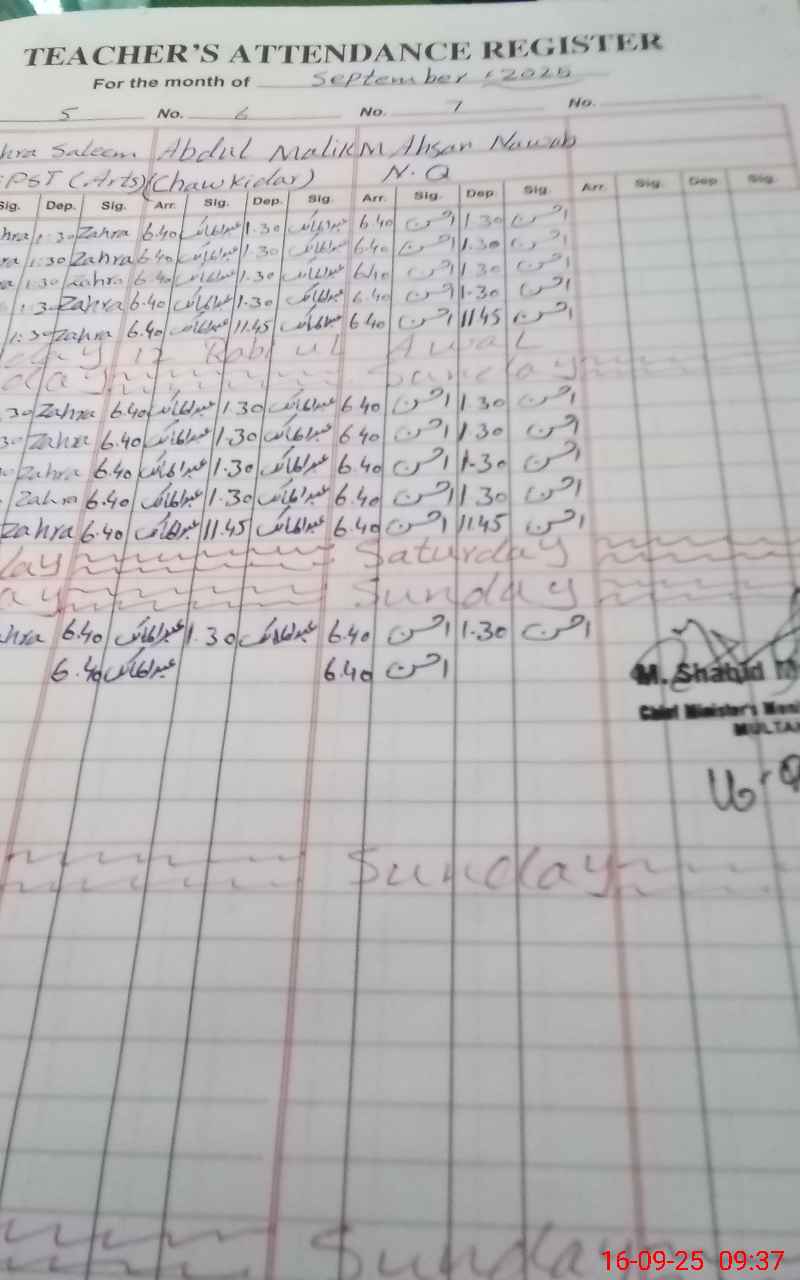 TEACHER'S ATTENDANCE REGISTER
For the month of September, 2025
5 No. 6 No. 7 No.
hra Saleem Abdul Malik M Ahsan Nawab
PST (Arts) (Chawkidar) N.Q
Sig. Dep. Sig. Arr. Sig. Dep. Sig. Arr. Sig. Dep Sig. Arr. Sig. Dep Sig.
hra 1:30 Zahra 6.40 عبدالمالک 1.30 عبدالمالک 6.40 احسن 1.30 احسن
ra 1:30 Zahra 6.40 عبدالمالک 1.30 عبدالمالک 6.40 احسن 1.30 احسن
a 1:30 Zahra 6.40 عبدالمالک 1.30 عبدالمالک 6.40 احسن 1.30 احسن
1:30 Zahra 6.40 عبدالمالک 1.30 عبدالمالک 6.40 احسن 1.30 احسن
1:30 Zahra 6.40 عبدالمالک 11.45 عبدالمالک 6.40 احسن 11 45 احسن
day 12 Rabi ul Awal
day Sunday
30 Zahra 6.40 عبدالمالک 1.30 عبدالمالک 6 40 احسن 1 30 احسن
30 Zahra 6.40 عبدالمالک 1.30 عبدالمالک 6 40 احسن 1.30 احسن
Zahra 6.40 عبدالمالک 1.30 عبدالمالک 6.40 احسن 1.30 احسن
Zahra 6.40 عبدالمالک 1.30 عبدالمالک 6.40 احسن 1 30 احسن
Zahra 6.40 عبدالمالک 11.45 عبدالمالک 6.40 احسن 11 45 احسن
day Saturday
ay Sunday
hra 6.40 عبدالمالک 1.30 عبدالمالک 6.40 احسن 1.30 احسن
6.40 عبدالمالک 6.40 احسن
M. Shahid
Chief Minister's Moni
MULTA
Sunday
Sunday
16-09-25 09:37